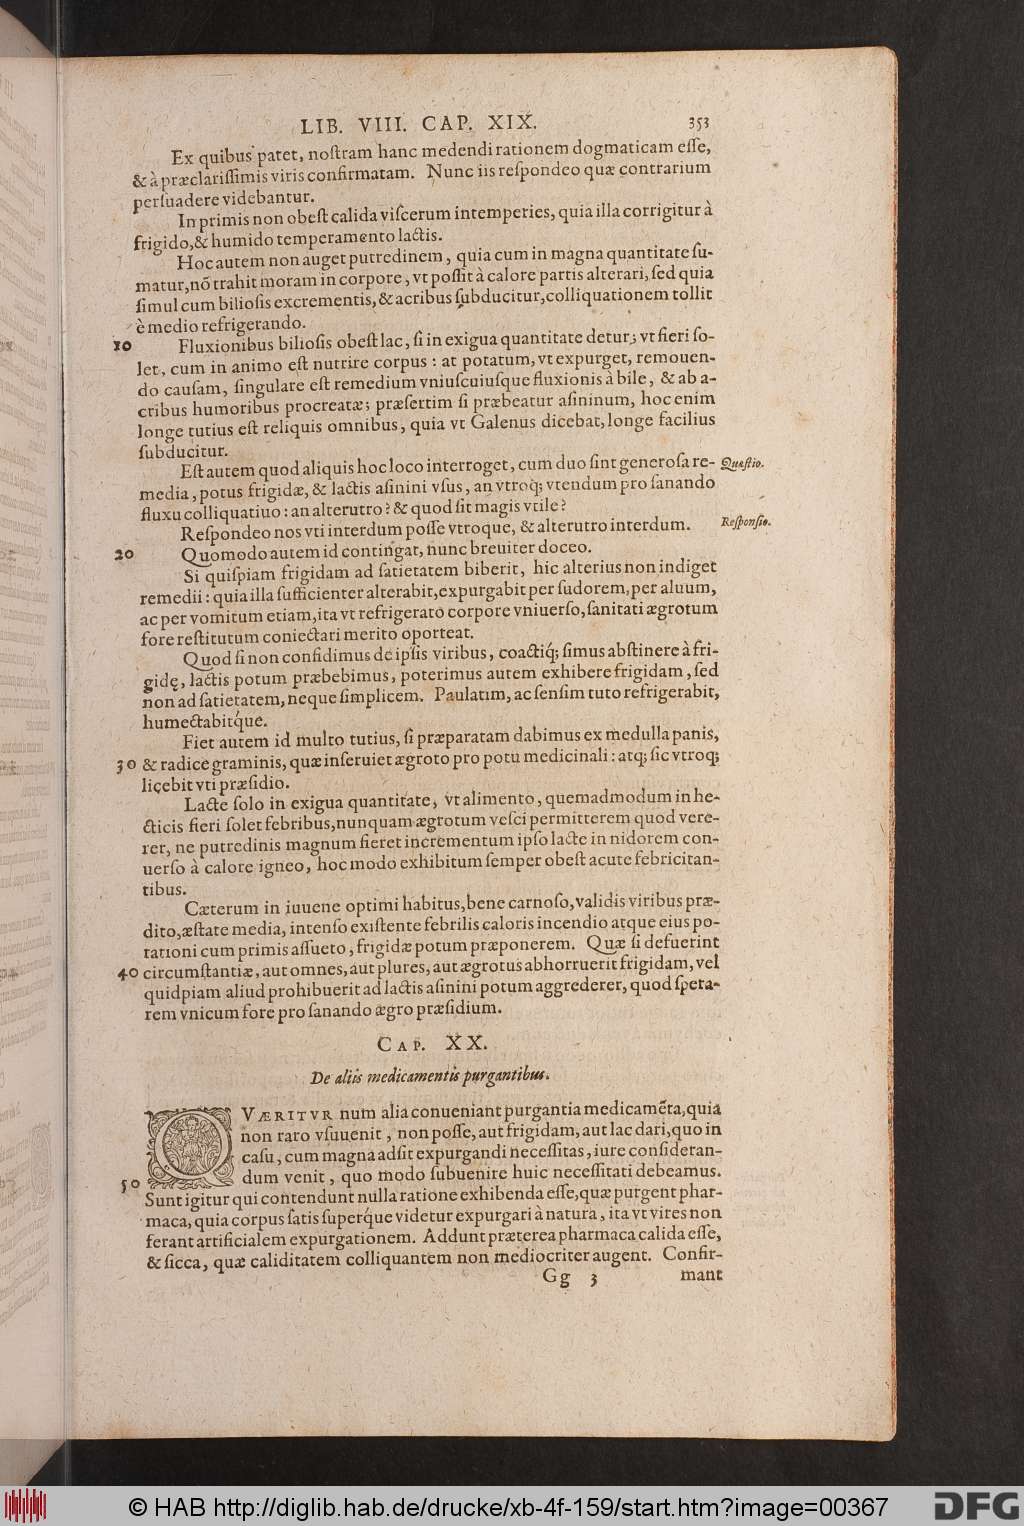 LIB. VIII. CAP. XIX. 353
Ex quibus patet, noſtram hanc medendi rationem dogmaticam eſſe,
& à præclariſſimis viris confirmatam. Nunc iis reſpondeo quæ contrarium
perſuadere videbantur.
In primis non obeſt calida viſcerum intemperies, quia illa corrigitur à
frigido,& humido temperamento lactis.
Hoc autem non auget putredinem, quia cum in magna quantitate ſu-
matur,nõ trahit moram in corpore, vt poſſit à calore partis alterari, ſed quia
ſimul cum bilioſis excrementis, & acribus ſubducitur,colliquationem tollit
è medio refrigerando.
10 Fluxionibus bilioſis obeſt lac, ſi in exigua quantitate detur; vt fieri ſo-
let, cum in animo eſt nutrire corpus: at potatum, vt expurget, remouen-
do cauſam, ſingulare eſt remedium vniuſcuiuſque fluxionis à bile, & ab a-
cribus humoribus procreatæ; præſertim ſi præbeatur aſininum, hoc enim
longe tutius eſt reliquis omnibus, quia vt Galenus dicebat, longe facilius
ſubducitur.
Eſt autem quod aliquis hoc loco interroget, cum duo ſint generoſa re- Quæſtio.
media, potus frigidæ, & lactis aſinini vſus, an vtroq; vtendum pro ſanando
fluxu colliquatiuo: an alterutro? & quod ſit magis vtile?
Reſpondeo nos vti interdum poſſe vtroque, & alterutro interdum. Reſponſio.
20 Quomodo autem id contingat, nunc breuiter doceo.
Si quiſpiam frigidam ad ſatietatem biberit, hic alterius non indiget
remedii: quia illa ſufficienter alterabit,expurgabit per ſudorem, per aluum,
ac per vomitum etiam,ita vt refrigerato corpore vniuerſo,ſanitati ægrotum
fore reſtitutum coniectari merito oporteat.
Quod ſi non confidimus de ipſis viribus, coactiq́; ſimus abſtinere à fri-
gidę, lactis potum præbebimus, poterimus autem exhibere frigidam, ſed
non ad ſatietatem, neque ſimplicem. Paulatim, ac ſenſim tuto refrigerabit,
humectabitq́ue.
Fiet autem id multo tutius, ſi præparatam dabimus ex medulla panis,
30 & radice graminis, quæ inſeruiet ægroto pro potu medicinali: atq; ſic vtroq;
licebit vti præſidio.
Lacte ſolo in exigua quantitate, vt alimento, quemadmodum in he-
cticis fieri ſolet febribus,nunquam ægrotum veſci permitterem quod vere-
rer, ne putredinis magnum fieret incrementum ipſo lacte in nidorem con-
uerſo à calore igneo, hoc modo exhibitum ſemper obeſt acute febricitan-
tibus.
Cæterum in iuuene optimi habitus,bene carnoſo,validis viribus præ-
dito,æſtate media, intenſo exiſtente febrilis caloris incendio atque eius po-
tationi cum primis aſſueto, frigidæ potum præponerem. Quæ ſi defuerint
40 circumſtantiæ, aut omnes, aut plures, aut ægrotus abhorruerit frigidam, vel
quidpiam aliud prohibuerit ad lactis aſinini potum aggrederer, quod ſpera-
rem vnicum fore pro ſanando ægro præſidium.
CAP. XX.
De aliis medicamentis purgantibus.
QVÆRITVR num alia conueniant purgantia medicamẽta,quia
non raro vſuuenit, non poſſe, aut frigidam, aut lac dari,quo in
caſu, cum magna adſit expurgandi neceſſitas, iure conſideran-
dum venit, quo modo ſubuenire huic neceſſitati debeamus.
50 Sunt igitur qui contendunt nulla ratione exhibenda eſſe,quæ purgent phar-
maca, quia corpus ſatis ſuperq́ue videtur expurgari à natura, ita vt vires non
ferant artificialem expurgationem. Addunt præterea pharmaca calida eſſe,
& ſicca, quæ caliditatem colliquantem non mediocriter augent. Confir-
Gg 3 mant
© HAB http://diglib.hab.de/drucke/xb-4f-159/start.htm?image=00367 DFG